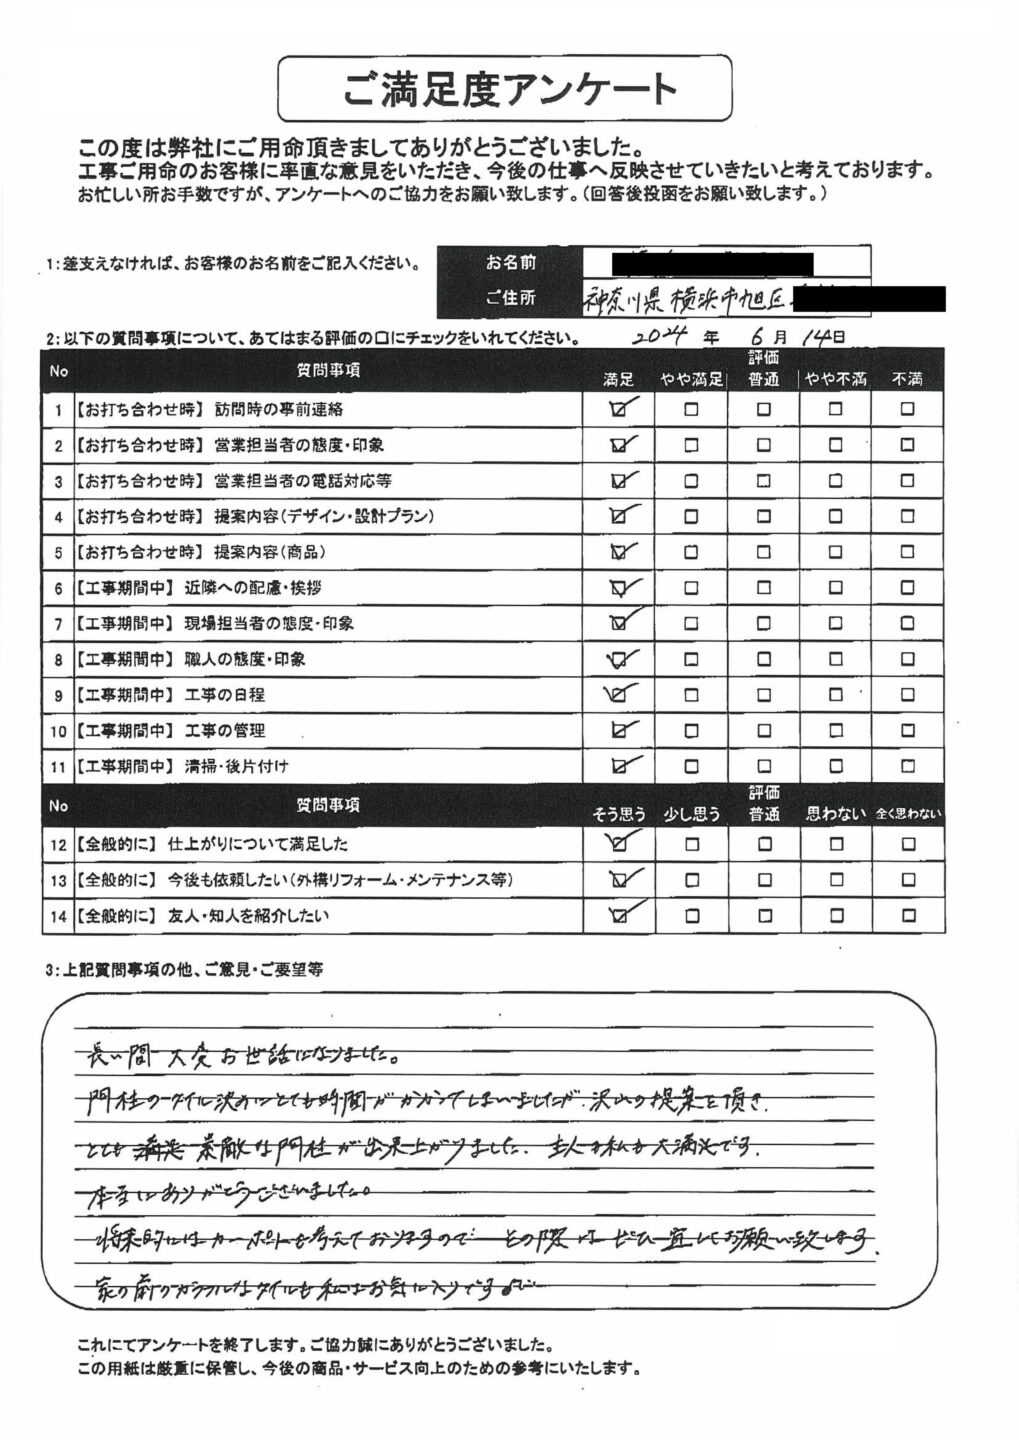 ご満足度アンケート
この度は弊社にご用命頂きましてありがとうございました。
工事ご用命のお客様に率直な意見をいただき、今後の仕事へ反映させていきたいと考えております。
お忙しい所お手数ですが、アンケートへのご協力をお願い致します。(回答後投函をお願い致します。)
1:差支えなければ、お客様のお名前をご記入ください。
お名前
ご住所 神奈川県横浜市旭区
2:以下の質問事項について、あてはまる評価の口にチェックをいれてください。 2024 年 6 月 14日
No 質問事項 評価
満足 やや満足 普通 やや不満 不満
1 【お打ち合わせ時】 訪問時の事前連絡 ☑ □ □ □ □
2 【お打ち合わせ時】 営業担当者の態度・印象 ☑ □ □ □ □
3 【お打ち合わせ時】 営業担当者の電話対応等 ☑ □ □ □ □
4 【お打ち合わせ時】 提案内容(デザイン・設計プラン) ☑ □ □ □ □
5 【お打ち合わせ時】 提案内容(商品) ☑ □ □ □ □
6 【工事期間中】 近隣への配慮・挨拶 ☑ □ □ □ □
7 【工事期間中】 現場担当者の態度・印象 ☑ □ □ □ □
8 【工事期間中】 職人の態度・印象 ☑ □ □ □ □
9 【工事期間中】 工事の日程 ☑ □ □ □ □
10 【工事期間中】 工事の管理 ☑ □ □ □ □
11 【工事期間中】 清掃・後片付け ☑ □ □ □ □
No 質問事項 評価
そう思う 少し思う 普通 思わない 全く思わない
12 【全般的に】 仕上がりについて満足した ☑ □ □ □ □
13 【全般的に】 今後も依頼したい(外構リフォーム・メンテナンス等) ☑ □ □ □ □
14 【全般的に】 友人・知人を紹介したい ☑ □ □ □ □
3:上記質問事項の他、ご意見・ご要望等
長い間 大変お世話になりました。
門柱のタイル決めにとても時間がかかってしまいましたが、沢山の提案を頂き、
とても 素敵な門柱が出来上がりました。主人も私も大満足です。
本当にありがとうございました。
将来的にはカーポートも考えておりますので その際はぜひ宜しくお願い致します。
家の前のカラフルなタイルも私はお気に入りです
これにてアンケートを終了します。ご協力誠にありがとうございました。
この用紙は厳重に保管し、今後の商品・サービス向上のための参考にいたします。